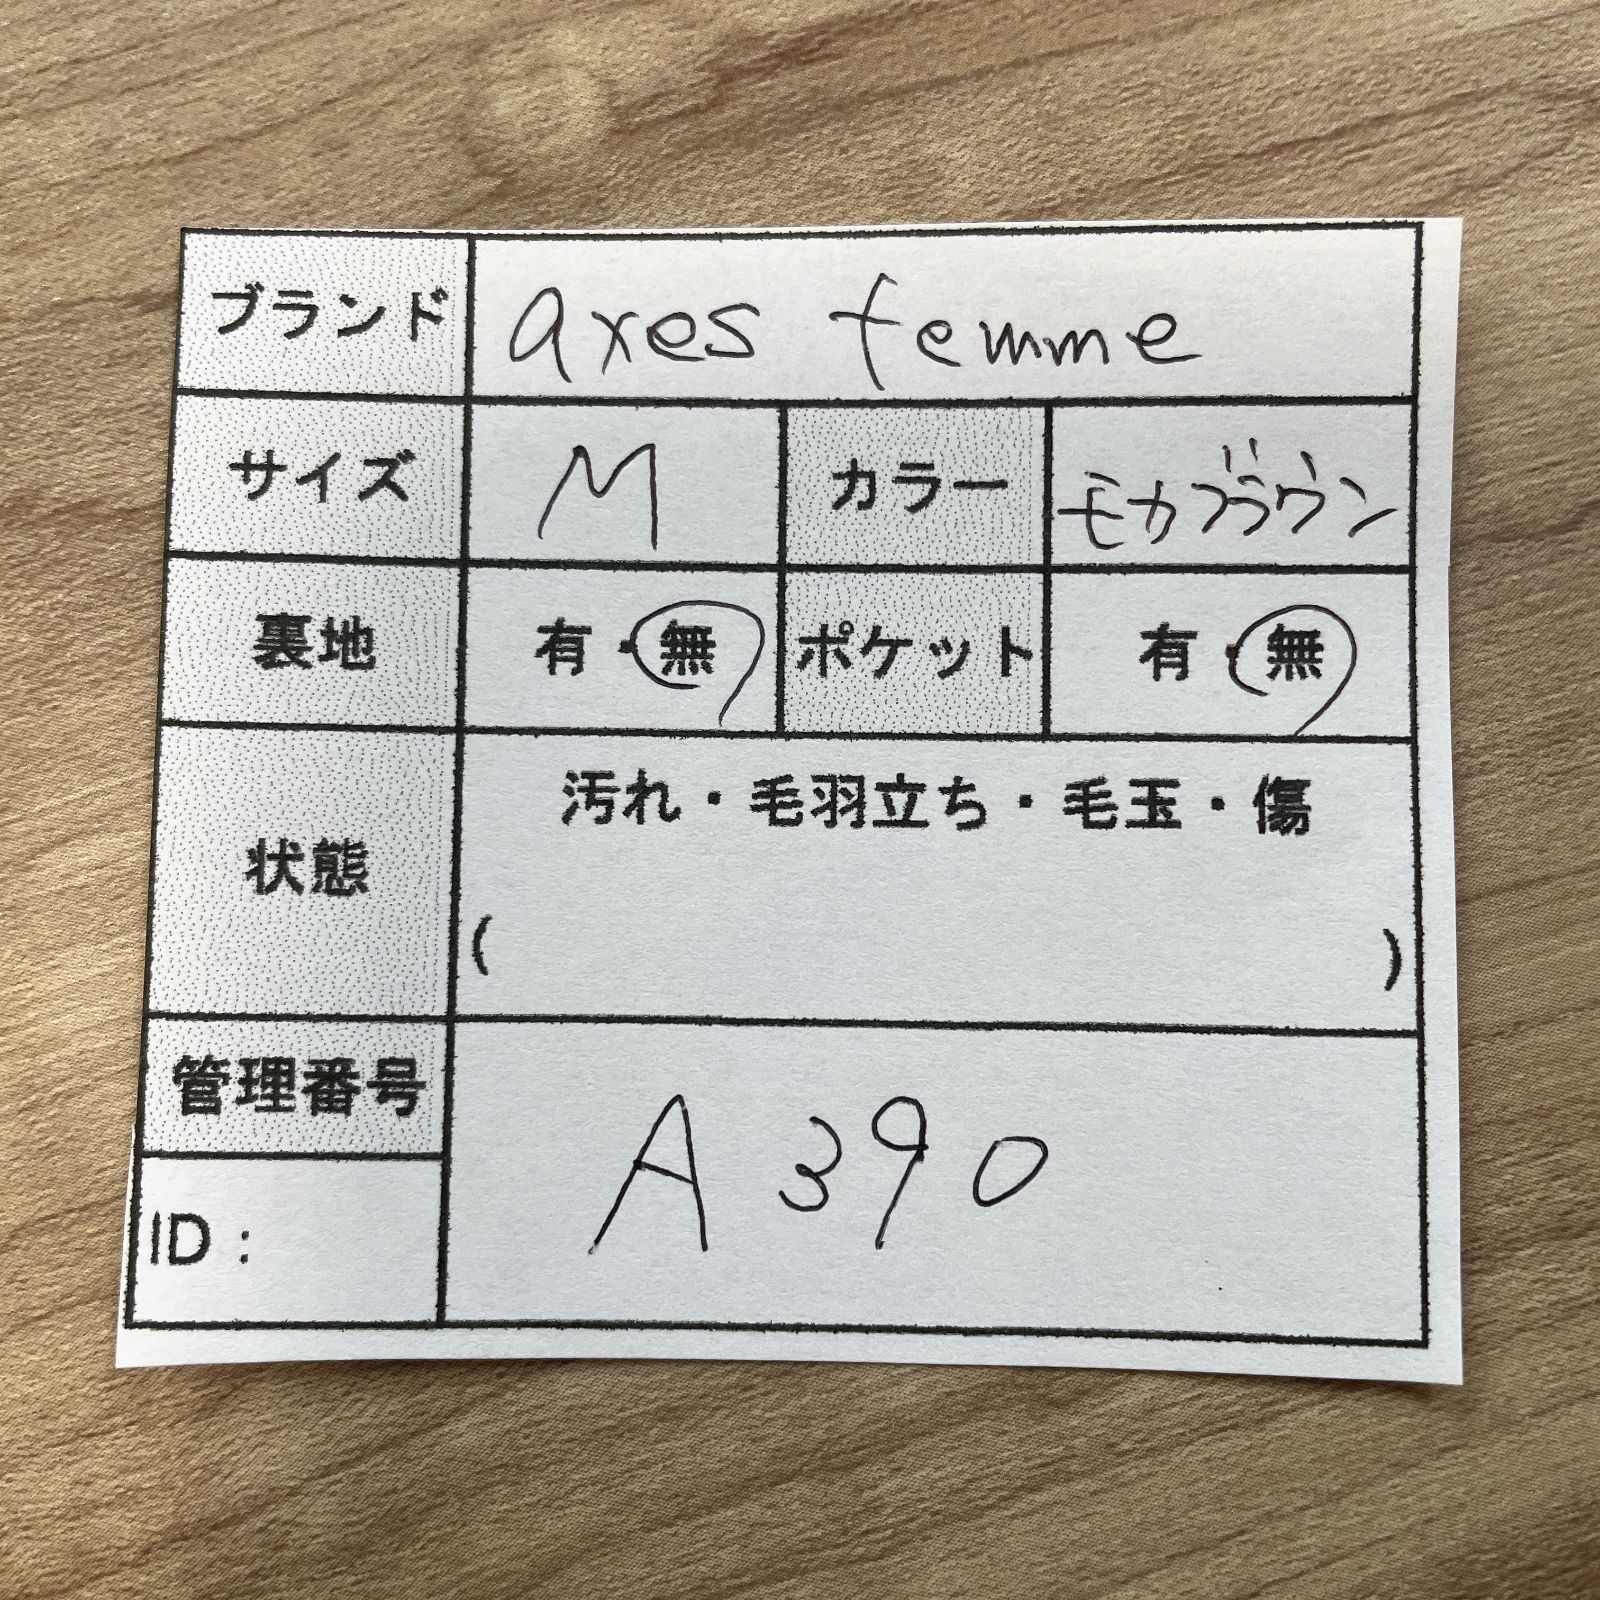 ブランド axes femme
サイズ M カラー モカブラウン
裏地 有・無 ポケット 有・無
状態 汚れ・毛羽立ち・毛玉・傷
( )
管理番号 A390
ID：